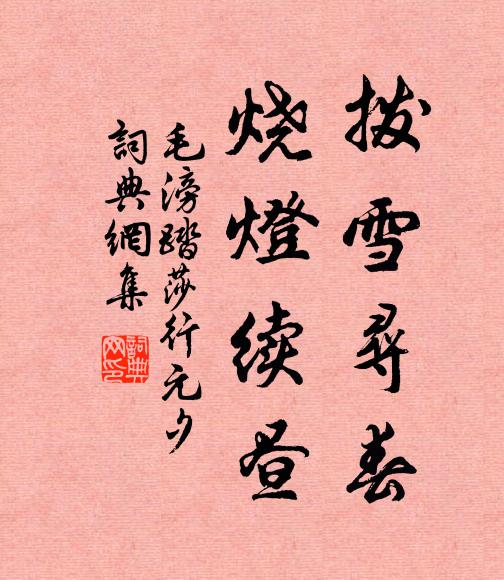 拨雪尋春
烧燈续昼
毛滂踏莎行元夕
詞典網集
詞典
网印